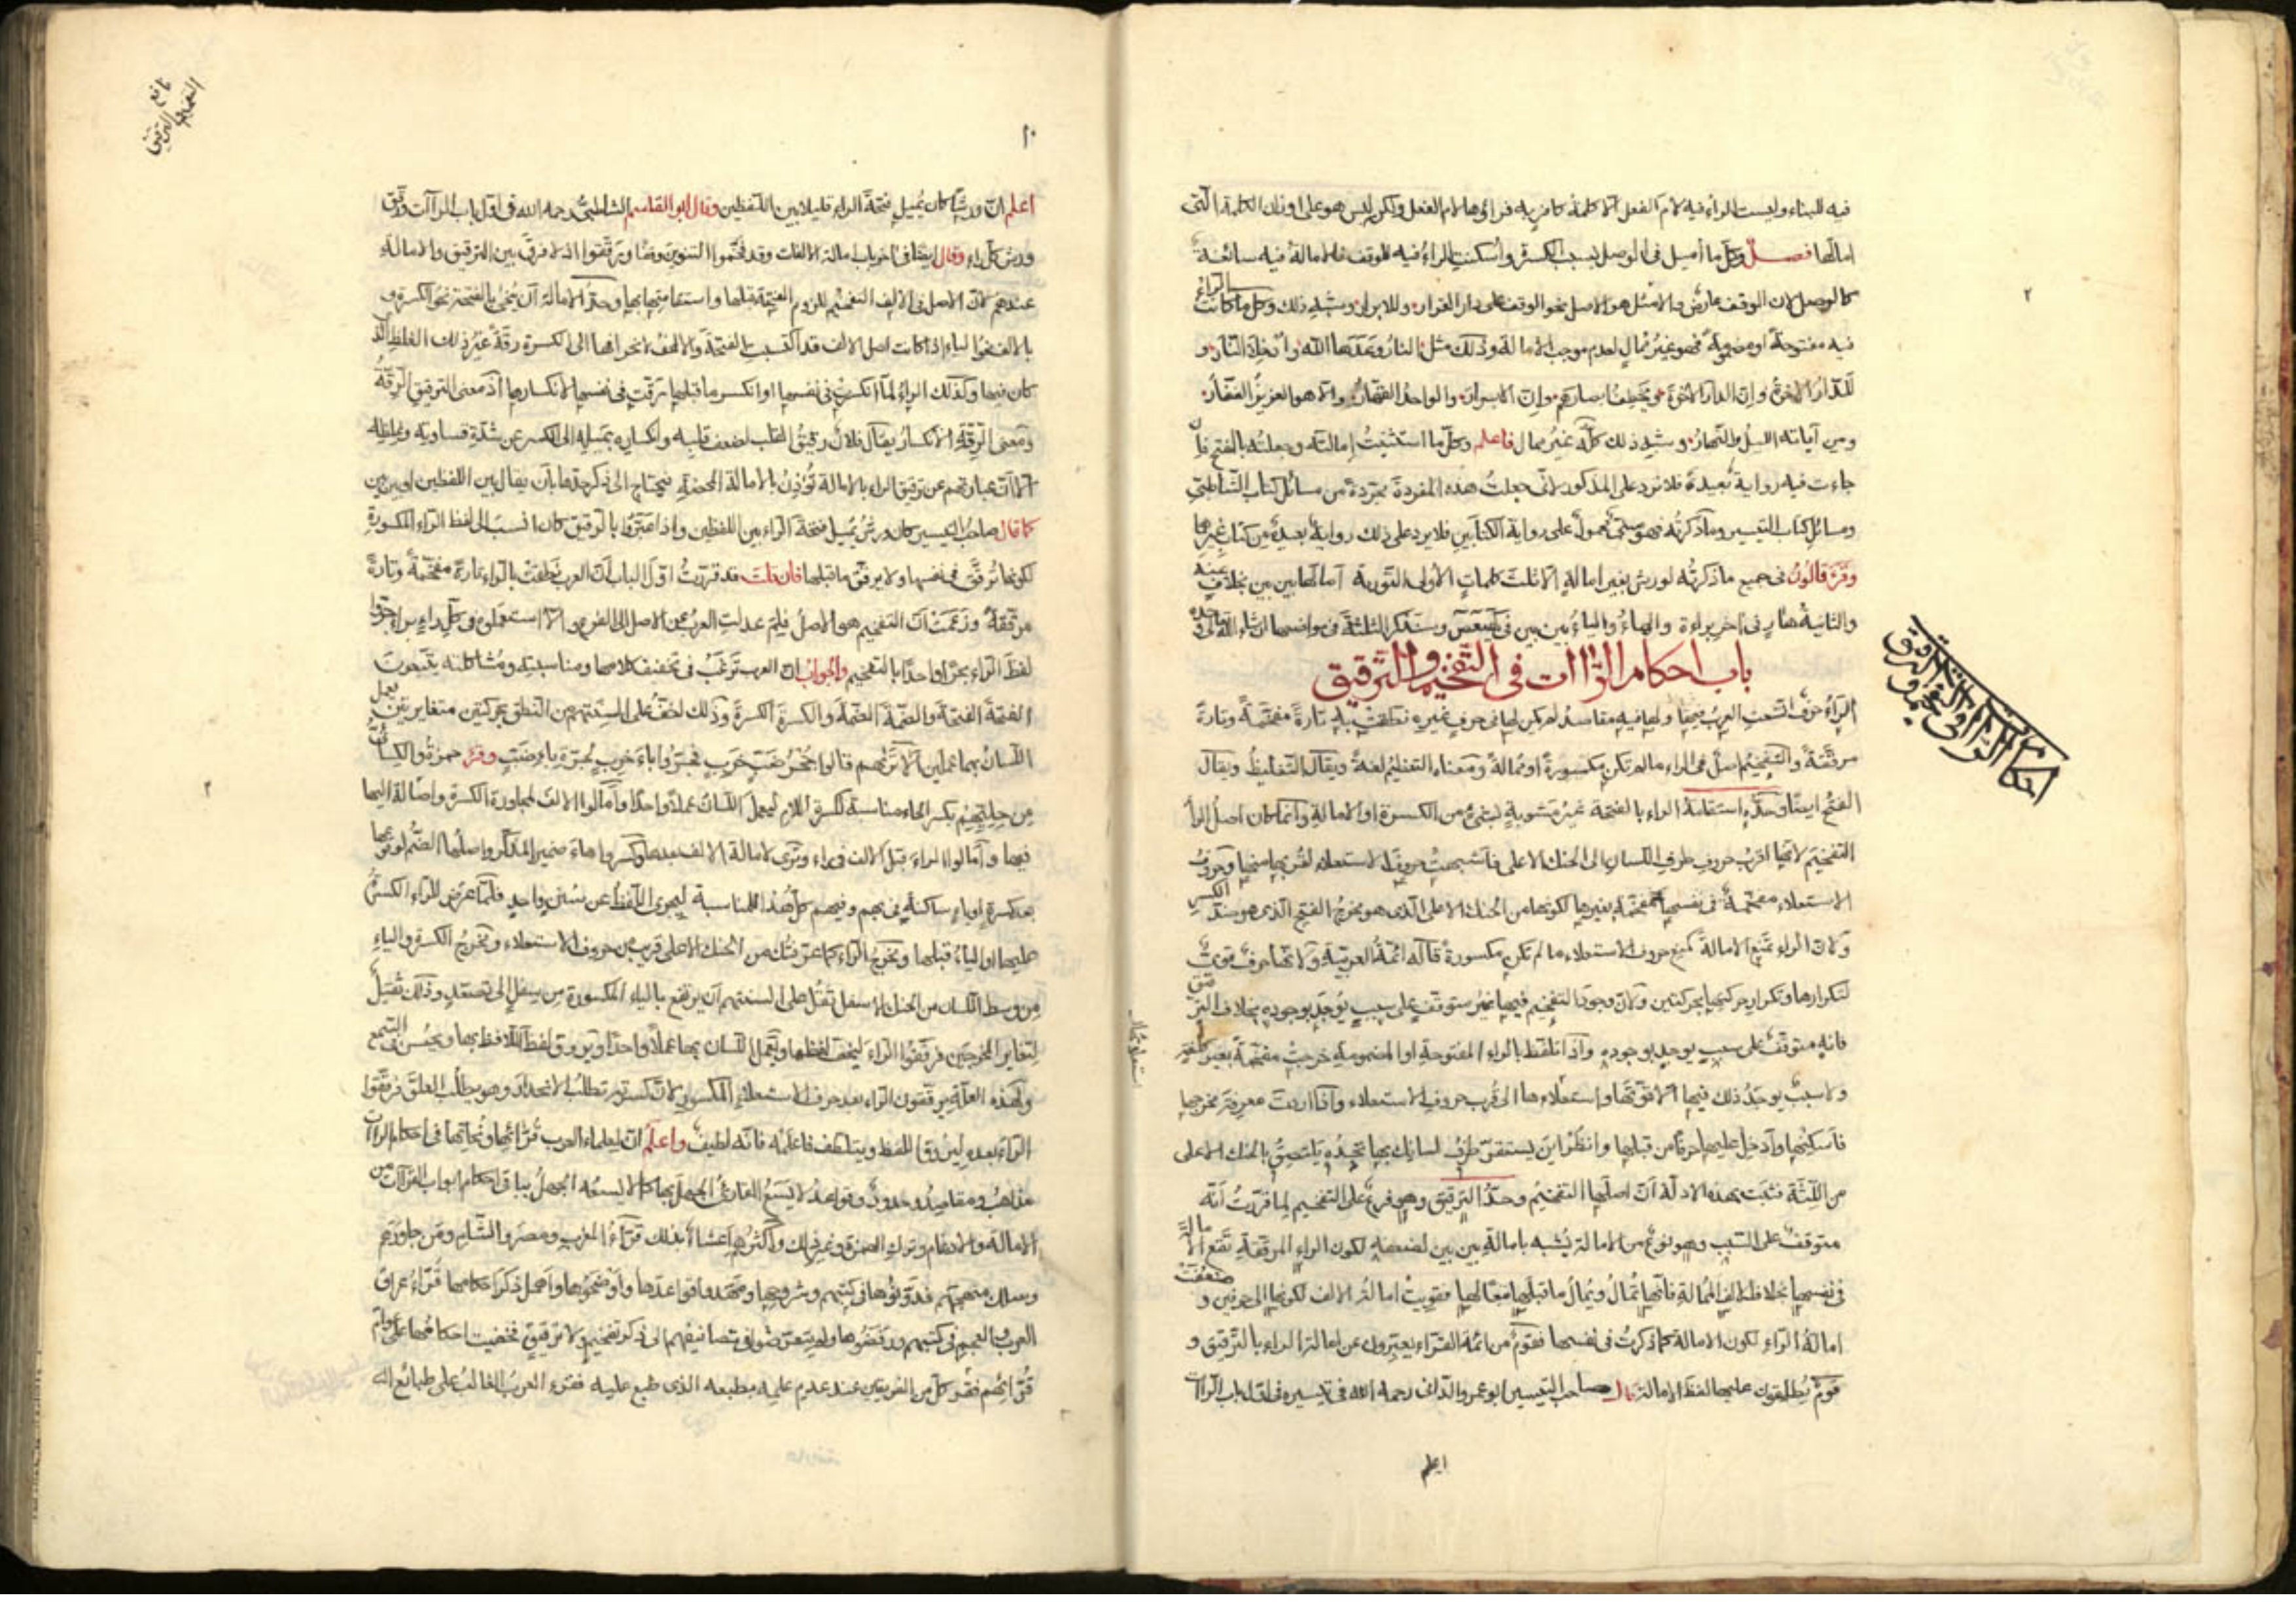 فيه للبناء وليست الراء فيه لام الفعل الا كلمة كافر به فرائها لام الفعل ولكن ليس هو على اوزان الكلمة التى
امالها فصل وكل ما أميل فى الوصل بسبب الكسرة واسكنت الراء فيه للوقف فالامالة فيه سائغة
كالوصل لان الوقف عارض والامثل هو الاصل نحو الوقف على دار القرار وللابرار وشبه ذلك وكل ما كانت الراء
فيه مفتوحة او مضمومة فهو غير ممال لعدم موجب الامالة وذلك مثل النار وعدها الله وادخلا النار و
للدار الاخرة وان الدار الاخرة ويخطف ابصارهم وان الابرار والواحد القهار والا هو العزيز الغفار
ومن آياته الليل والنهار وشبه ذلك كله غير ممال فاعلم وكل ما استثنيت إمالته وجعلته بالفتح فان
جاءت فيه رواية بعيدة فلا ترد على المذكور لانى جعلت هذه المفردة مجردة من مسائل كتاب الشاطبى
ومسائل كتاب التيسير وما ذكرته فهو محمول على رواية الكتابين فلا يرد على ذلك رواية بعيدة من كتاب غيرها
وقرء قالون فى جميع ما ذكرته لورش بغير امالة الا ثلث كلمات الأولى التورية أمالها بين بين بخلاف عنه
والثانية هار فى اخر براءة والهاء والياء بين بين فى كهيعص وسنذكر الثلثة فى مواضعها ان شاء الله تعالى
باب احكام الراات فى التفخيم والترقيق
الراء حرف اتسعت العرب فيها ولها فيه مقاصد لم يكن لها فى حرف غيره نطقت به تارة مفخمة وتارة
مرققة والتفخيم اصل فى الراء ما لم تكن مكسورة او ممالة ومعناه التعظيم لغة ويقال التغليظ ويقال
الفتح ايضا وحده استقامة الراء بالفتحة غير مشوبة بشئ من الكسرة او الامالة وانما كان اصل الراء
التفخيم لانها اقرب حروف طرف اللسان الى الحنك الاعلى فاشبهت حروف الاستعلاء لقربها منها وحروف
الاستعلاء مفخمة فى نفسها مفخمة لغيرها لكونها من الحنك الاعلى الذى هو مخرج الفتح الذى هو ضد الكسر
ولان الراء تمنع الامالة كمنع حروف الاستعلاء ما لم تكن مكسورة قاله ائمة العربية ولانها حرف قوى
لتكرارها وتكرار حركتها بحركتين ولان وجود التفخيم فيها غير متوقف على سبب يوجد بوجوده بخلاف الترقيق
فانه متوقف على سبب يوجد بوجوده واذا تلفظ بالراء المفتوحة او المضمومة خرجت مفخمة بغير
ولا سبب يوجد ذلك فيها الا قوتها واستعلاءها الى قرب حروف الاستعلاء واذا اردت معرفة مخرجها
فاسكنها وأدخل عليها حرفا من قبلها وانظر اين يستقر طرف لسانك بها تجده يلتصق بالحنك الاعلى
من اللثة فثبت بهذه الادلة ان اصلها التفخيم وحد الترقيق وهو فرع على التفخيم لما قررت أنه
متوقف على السبب وهو نوع من الامالة يشبه بامالة بين بين لضعفه لكون الراء المرققة تقع الامالة
فى نفسها بخلاف الالف الممالة فانها تمال ويمال ما قبلها معا لها فقويت امالة الالف لكونها الى حرفين وضعفت
امالة الراء لكون الامالة كما ذكرت فى نفسها فقوم من ائمة القراء يعبرون عن امالة الراء بالترقيق و
قوم يطلقون عليها لفظ الامالة قال صاحب التيسير ابو عمرو الدانى رحمه الله فى تيسيره فى اول باب الراات
اعلم
احكام الراات فى التفخيم والترقيق
٢
١٠
تابع التفخيم والترقيق
اعلم ان ورشا كان يميل فتحة الراء قليلا بين اللفظين وقال ابو القاسم الشاطبى رحمه الله فى اول باب الراآت ورقق
ورش كل راء وقال ايضا فى اخر باب امالة الالفات وقد فخموا التنوين وقفا ورققوا اذ لا فرق بين الترقيق والامالة
عندهم لان الاصل فى الالف التفخيم للزوم الفتحة قبلها واستقامتها بها وحد الامالة أن ينحى بالفتحة نحو الكسرة و
بالالف نحو الياء اذا كانت اصل الالف قد اكتسبت الفتحة والالف لانحرافها الى الكسرة رقة غير ذلك الغلظ الذى
كان فيها وكذلك الراء لما انكسرت فى نفسها او انكسر ما قبلها ترققت فى نفسها لانكسارها اذ معنى الترقيق الرقة
ومعنى الرقة الانكسار يقال فلان رقيق القلب لضعف قلبه وانكساره بميله الى الكسر عن شدة قساوته وغلظه
الا ان عبارتهم عن ترقيق الراء بالامالة تؤذن بالامالة المحضة فيحتاج الى ذكر حدها بأن يقال بين اللفظين او بين بين
كما قال صاحب التيسير كان ورش يميل فتحة الراء بين اللفظين واذا عبروا بالترقيق كان انسب الى لفظ الراء المكسورة
لكونها ترقق فى نفسها ولا يرقق ما قبلها فان قلت قد قررت اول الباب أن العرب نطقت بالراء تارة مفخمة وتارة
مرققة وزعمت أن التفخيم هو الاصل فلم عدلت العرب عن الاصل الى الفرع والا استعملوه فى كل راء
لفظ الراء مجرا واحدا بالتفخيم والجواب ان العرب ترغب فى تخفيف كلامها ومناسبته ومشاكلته يتبعون
الفتحة الفتحة والضمة الضمة والكسرة الكسرة وذلك اخف على السنتهم من النطق بحركتين متغايرتين يعمل
اللسان بهما عملين الا تراهم قالوا جحر ضب خرب وقرء حمزة والكسائى
من حليهم بكسر الحاء مناسبة لكسرة اللام ليعمل اللسان عملا واحدا وأمالوا الالف لمجاورة الكسرة واصالة الياء
فيها وأمالوا الراء قبل الالف فى راء وترى لامالة الالف بعدها وكسروا هاء ضمير المذكر واصلها الضم لوقوعها
بعد كسرة او ياء ساكنة فى بهم وفيهم كل هذا للمناسبة ليجرى اللفظ عن سنن واحد فلما عرض للراء الكسرة
عليها او الياء قبلها ومخرج الراء كما عرفتك من الحنك الاعلى قريب من حروف الاستعلاء ومخرج الكسرة والياء
من وسط اللسان من الحنك الاسفل ثقل على السنتهم أن يرتفع بالياء المكسورة من سفل الى تصعد وذلك ثقيل
لتغاير المخرجين فرققوا الراء ليخف لفظها ويعمل اللسان بها عملا واحدا ويروق لفظ اللافظ بها ويحسن فى السمع
ولهذه العلة يرققون الراء بعد حرف الاستعلاء المكسور لان كسرته تطلب الانحدار وهو يطلب العلو فرققوا
الراء بعده ليروق اللفظ ويتلطف فاعلمه فانه لطيف واعلم ان لعلماء العرب قرائها ونحاتها فى احكام الراآت
مذاهب ومقاصد وحدود وقواعد لا يسع القارئ الجهل بها كما لا يسعه الجهل بباقى احكام ابواب القرآت من
الامالة والادغام وترك الهمزة وغير ذلك واكثرهم اعتناء بذلك قراء المغرب ومصر والشام ومن جاورهم
وسلك منهجهم فدونوها فى كتبهم وشروحها ومهدوا قواعدها واوضحوها واهمل ذكر احكامها قراء عراق
العرب والعجم فى كتبهم ورفضوها ولم يتعرضوا فى تصانيفهم الى ذكر تفخيم ولا ترقيق فخفيت احكامها على عوام
قرائهم فقرء كل من الفريقين عند عدم علمه بطبعه الذى طبع عليه فقرء العرب الغالب على طبائع اله
٢